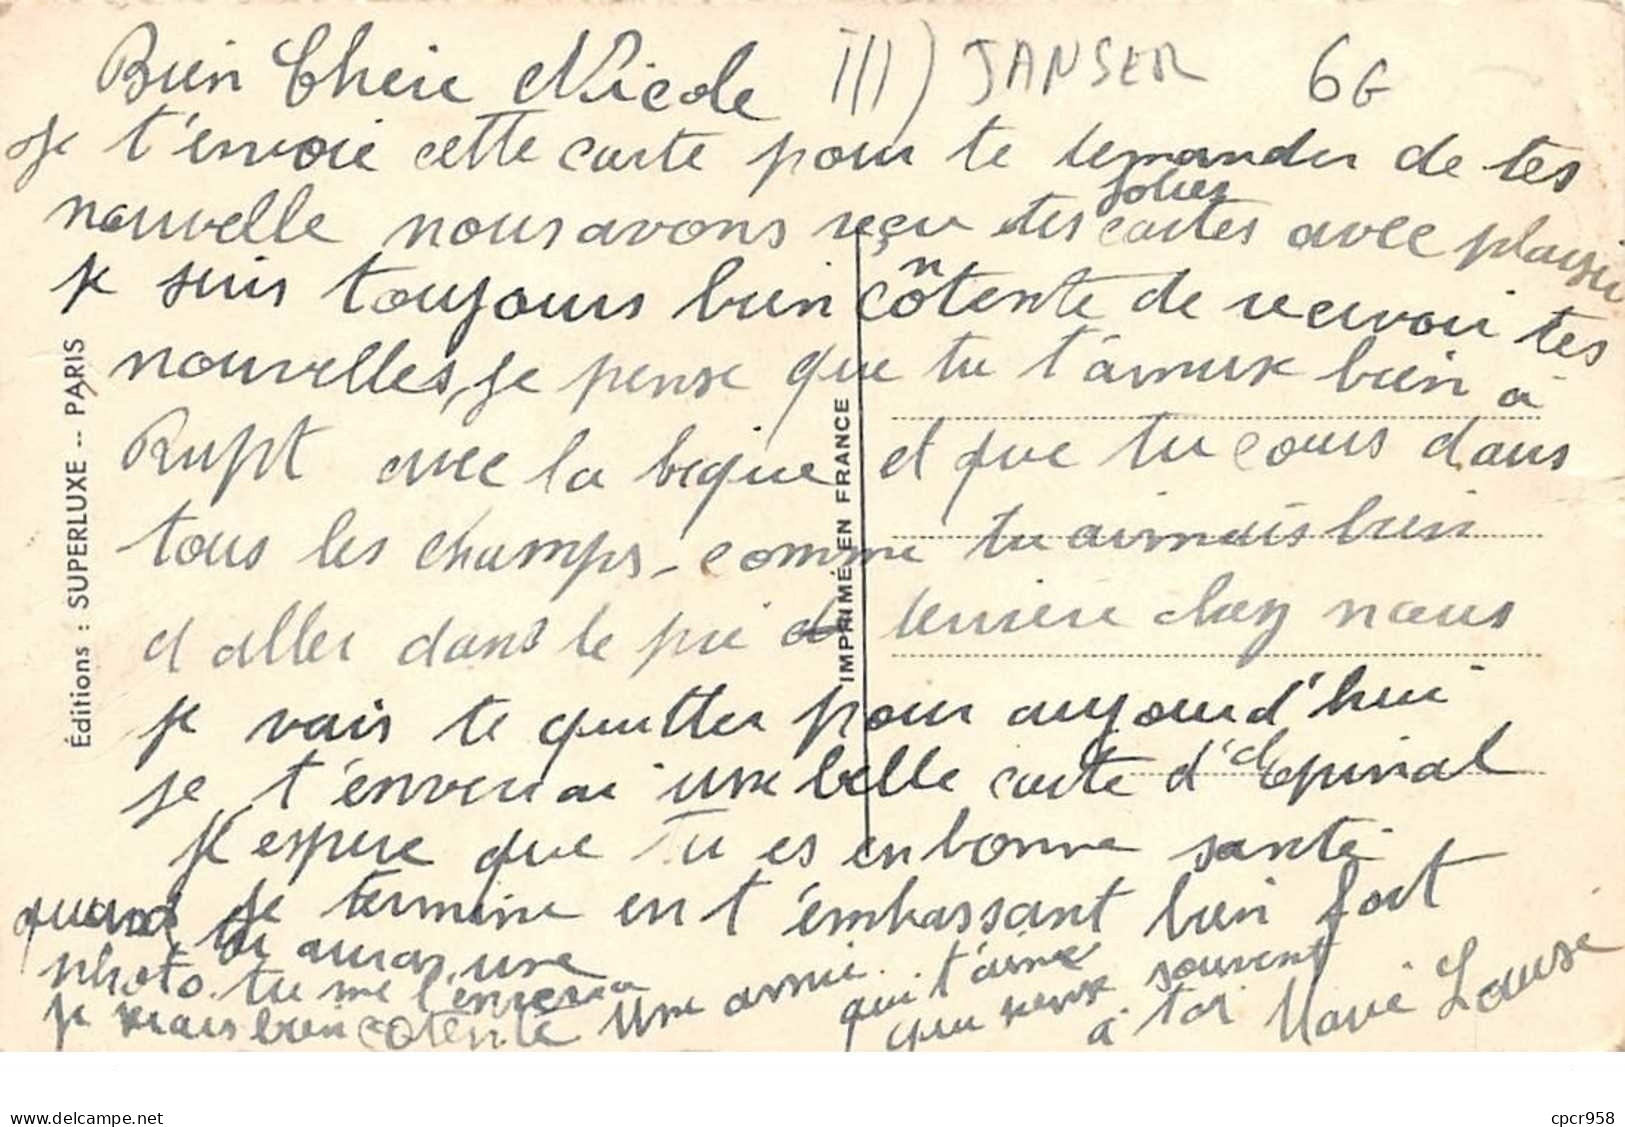 Bien Chère Nicole III) JANSER 6G
Je t'envoie cette carte pour te demander de tes
jolies
nouvelle nous avons reçu tes cartes avec plaisir
je suis toujours bien contente de recevoir tes
nouvelles, je pense que tu t'amuse bien à
Rupt avec la bique et que tu cours dans
tous les champs - comme tu aimais bien
d aller dans le pré derrière chez nous
je vais te quitter pour aujourd'hui
je t'enverrai une belle carte d'Epinal
J'espere que tu es en bonne santé
je termine en t'embrassant bien fort
quand tu auras une
photo tu me l'enverra
je serais bien cotente
une amie qui t'aime
qui pense souvent
à toi Marie Louise
Éditions : SUPERLUXE -- PARIS
IMPRIMÉ EN FRANCE
delcampe.net
cpcr958